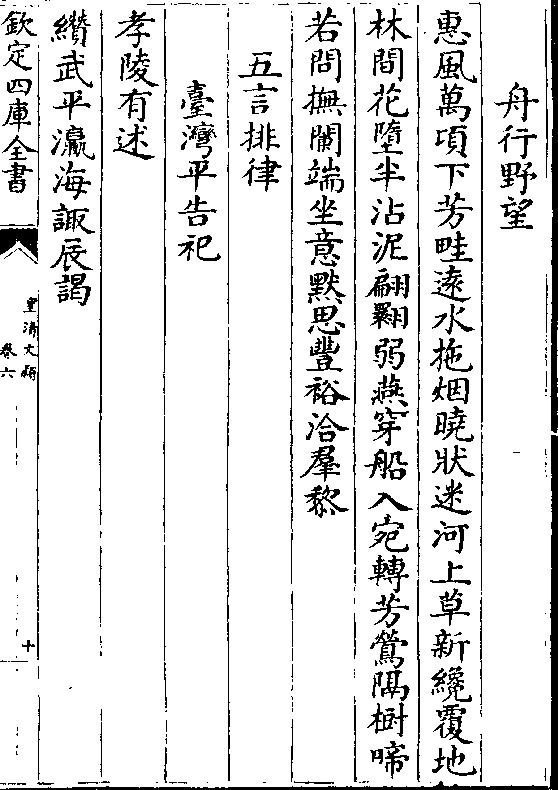 舟行野望
惠風萬頃下芳畦遠水拖烟曉狀迷河上草新纔覆地
林間花墮半沾泥翩翾弱燕穿船入宛轉芳鶯隔樹啼
若問撫闌端坐意默思豐裕洽羣黎
五言排律
臺灣平告祀
孝陵有述
纘武平瀛海諏辰謁
欽定四庫全書
皇清文穎
卷六
十